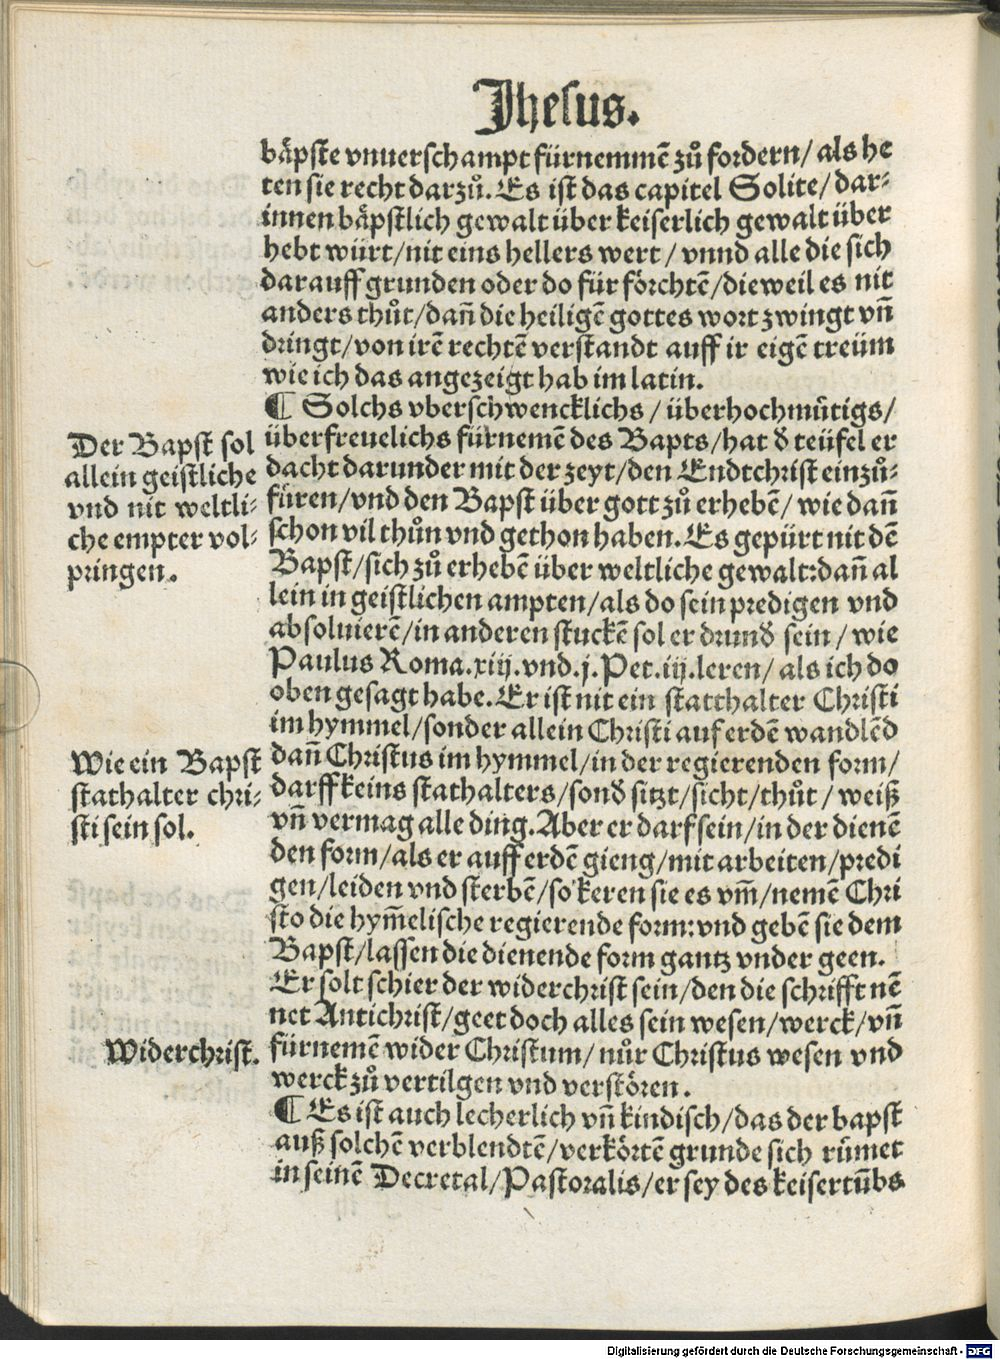 Jhesus.
bäpste vnuerschampt fürnemmē zů fordern/ als he
ten sie recht darzů. Es ist das capitel Solite/ dar⸗
innen bäpstlich gewalt über keiserlich gewalt über
hebt würt/ nit eins hellers wert/ vnnd alle die sich
darauff grunden oder do für förchtē/ dieweil es nit
anders thůt/ dañ die heiligē gottes wort zwingt vñ
dringt/ von irē rechtē verstandt auff ir eigē treüm
wie ich das angezeigt hab im latin.
¶ Solchs vberschwencklichs/ überhochmütigs/
überfreuelichs fürnemē des Bapts/ hat ꝺ teüfel er
dacht darunder mit der zeyt/ den Endtchrist einzů⸗
füren/ vnd den Bapst über gott zů erhebē/ wie dañ
schon vil thůn vnd gethon haben. Es gepürt nit dē
Bapst/ sich zů erhebē über weltliche gewalt: dañ al
lein in geistlichen ampten/ als do sein predigen vnd
absoluierē/ in anderen stuckē sol er drunꝺ sein/ wie
Paulus Roma. xiij. vnd. j. Pet. iij. leren/ als ich do
oben gesagt habe. Er ist nit ein statthalter Christi
im hymmel/ sonder allein Christi auf erdē wandlēd
dañ Christus im hymmel/ in der regierenden form/
darff keins stathalters/ sonꝺ sitzt/ sicht/ thůt/ weiß
vñ vermag alle ding. Aber er darf sein/ in der dienē
den form/ als er auff erdē gieng/ mit arbeiten/ predi
gen/ leiden vnd sterbē/ so keren sie es vm̄/ nemē Chri
sto die hym̄elische regierende form: vnd gebē sie dem
Bapst/ lassen die dienende form gantz vnder geen.
Er solt schier der widerchrist sein/ den die schrifft nē
net Antichrist/ geet doch alles sein wesen/ werck/ vñ
fürnemē wider Christum/ nůr Christus wesen vnd
werck zů vertilgen vnd verstören.
¶ Es ist auch lecherlich vñ kindisch/ das der bapst
auß solchē verblendtē/ verkörtē grunde sich rümet
in seinē Decretal/ Pastoralis/ er sey des keisertūbs
Der Bapst sol
allein geistliche
vnd nit weltli⸗
che empter vol⸗
pringen.
Wie ein Bapst
stathalter chri⸗
sti sein sol.
Widerchrist.
Digitalisierung gefördert durch die Deutsche Forschungsgemeinschaft - DFG